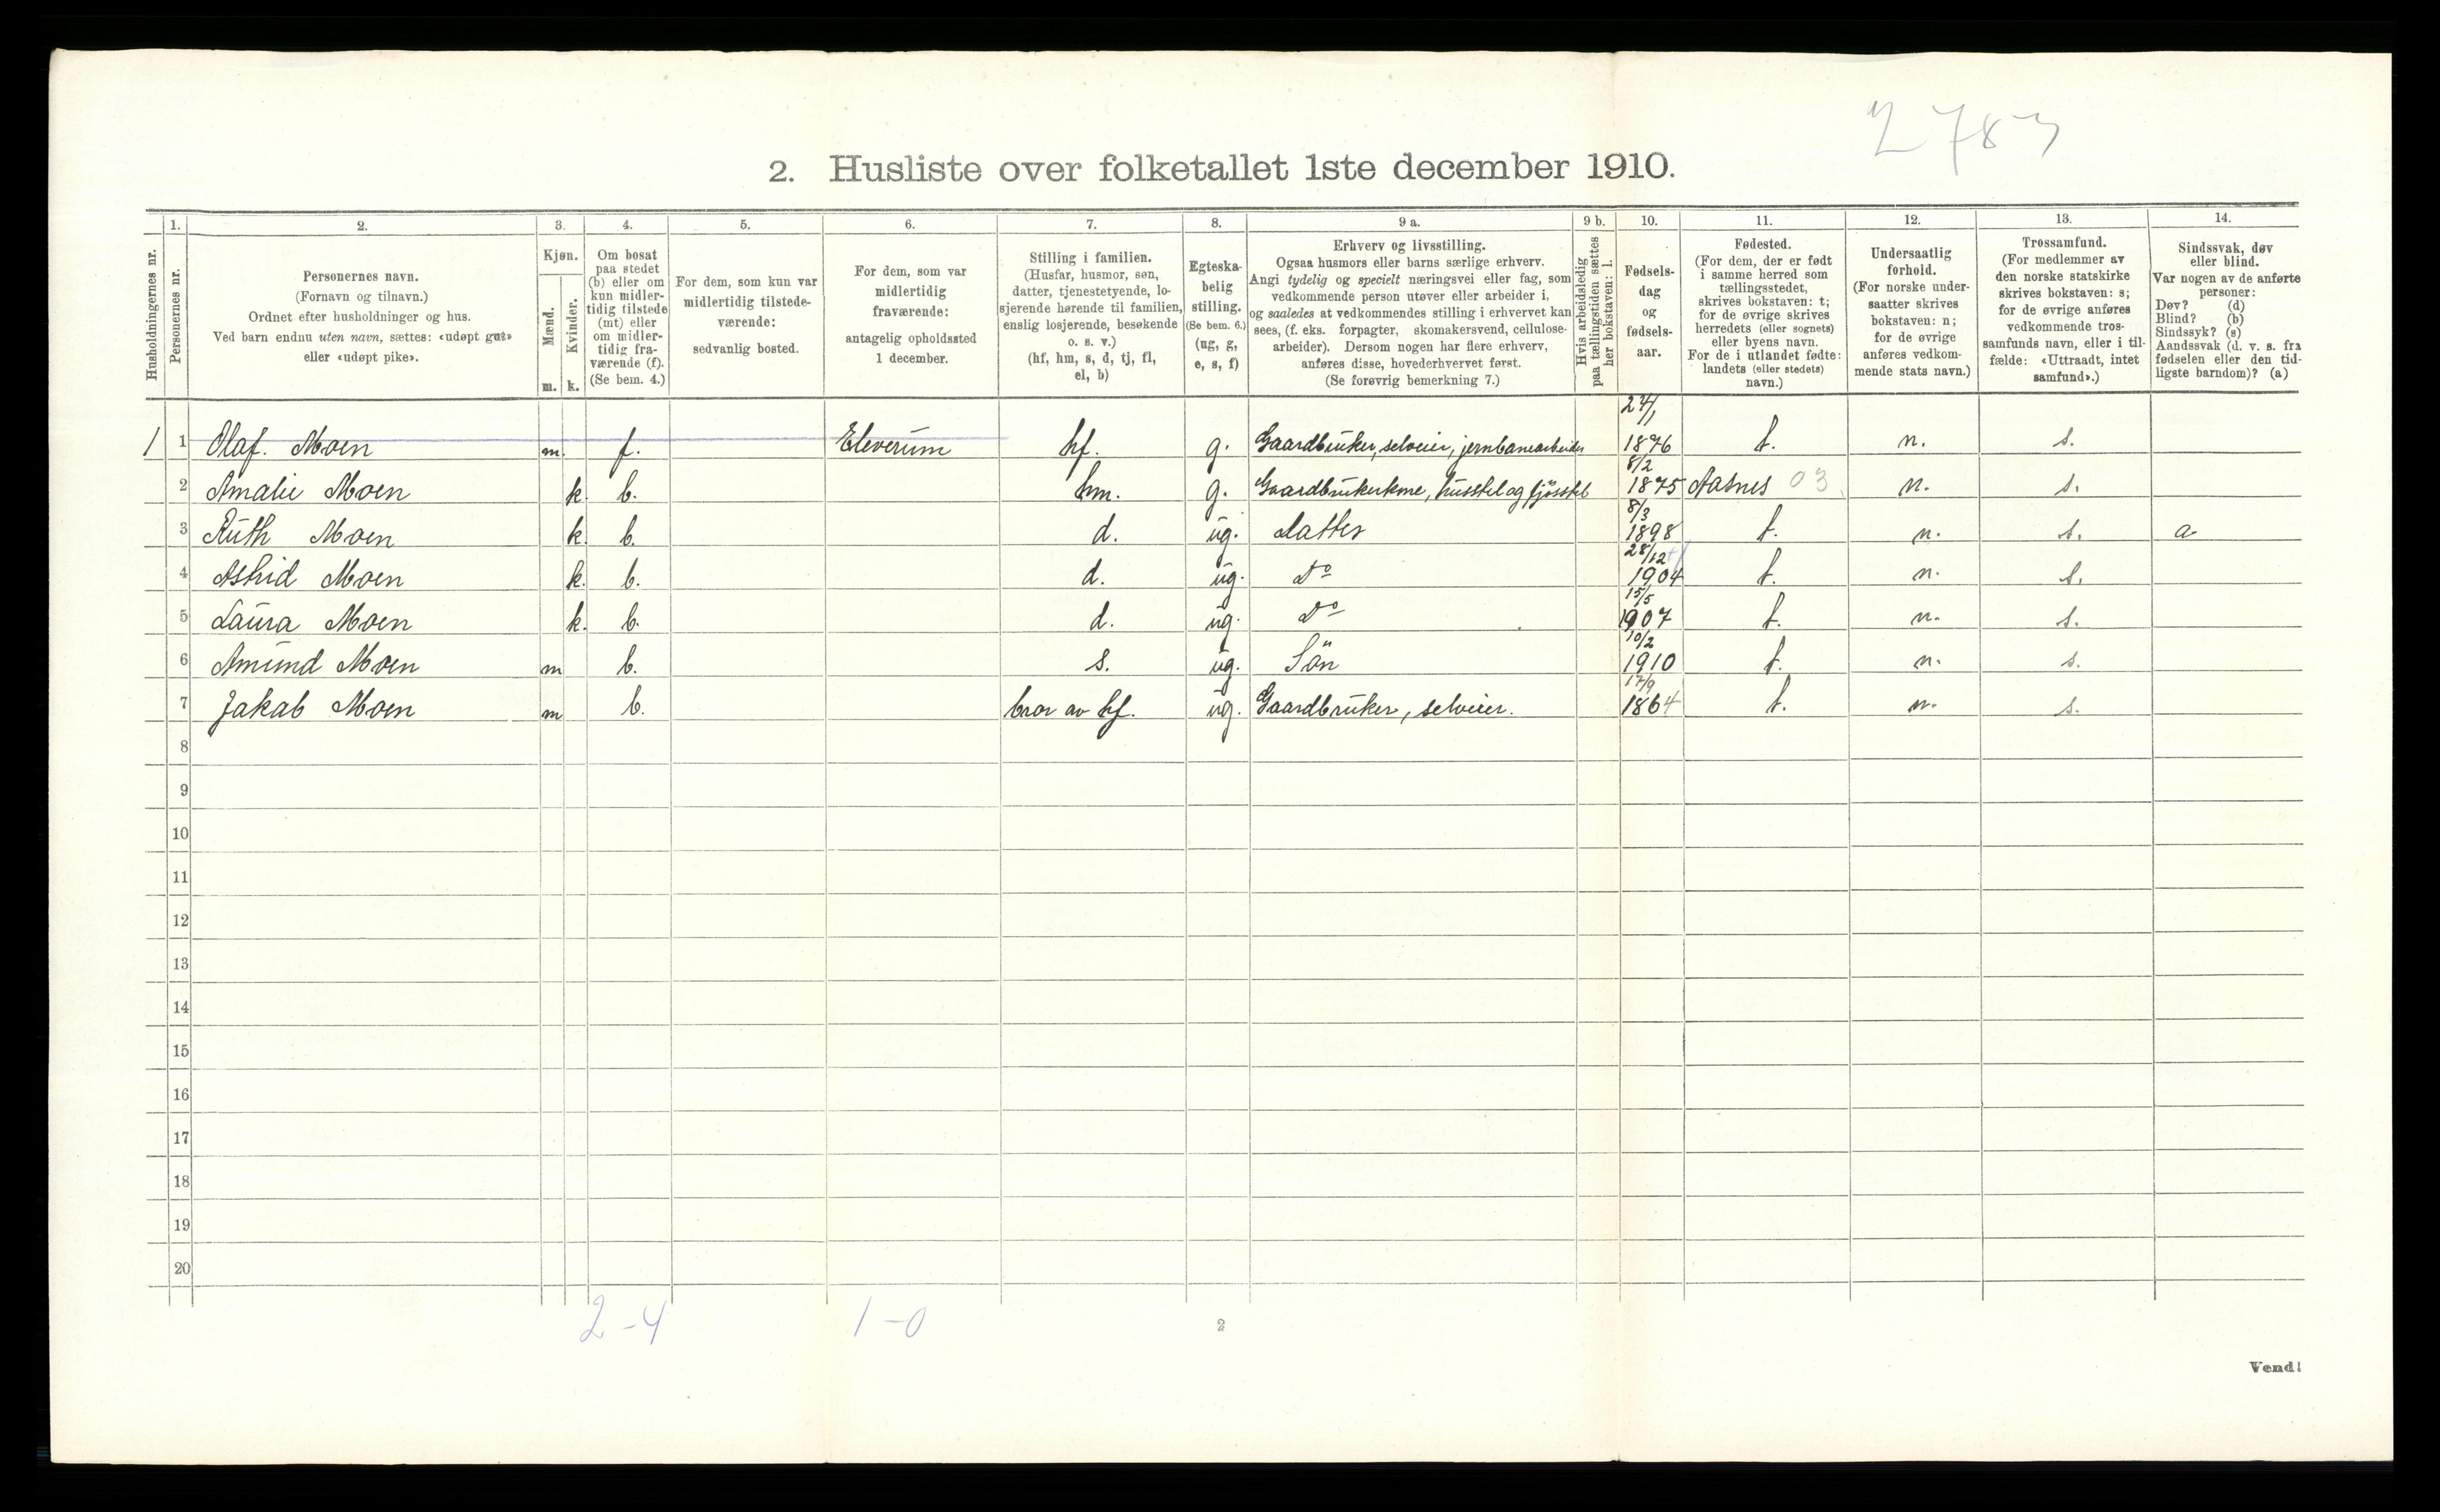 2783
2. Husliste over folketallet 1ste december 1910.
Husholdningernes nr.
1.
Personernes nr.
2.
Personernes navn.
(Fornavn og tilnavn.)
Ordnet efter husholdninger og hus.
Ved barn endnu uten navn, sættes: «udøpt gut»
eller «udøpt pike».
3.
Kjøn.
Mænd.
Kvinder.
m. k.
4.
Om bosat
paa stedet
(b) eller om
kun midler-
tidig tilstede
(mt) eller
om midler-
tidig fra-
værende (f).
(Se bem. 4.)
5.
For dem, som kun var
midlertidig tilstede-
værende:
sedvanlig bosted.
6.
For dem, som var
midlertidig
fraværende:
antagelig opholdssted
1 december.
7.
Stilling i familien.
(Husfar, husmor, søn,
datter, tjenestetyende, lo-
sjerende hørende til familien,
enslig losjerende, besøkende
o. s. v.)
(hf, hm, s, d, tj, fl,
el, b)
8.
Egteska-
belig
stilling.
(Se bem. 6.)
(ug, g,
e, s, f)
9 a.
Erhverv og livsstilling.
Ogsaa husmors eller barns særlige erhverv.
Angi tydelig og specielt næringsvei eller fag, som
vedkommende person utøver eller arbeider i,
og saaledes at vedkommendes stilling i erhvervet kan
sees, (f. eks. forpagter, skomakersvend, cellulose-
arbeider). Dersom nogen har flere erhverv,
anføres disse, hovederhvervet først.
(Se forøvrig bemerkning 7.)
9 b.
Hvis arbeidsledig
paa tællingstiden sættes
her bokstaven: l.
10.
Fødsels-
dag
og
fødsels-
aar.
11.
Fødested.
(For dem, der er født
i samme herred som
tællingsstedet,
skrives bokstaven: t;
for de øvrige skrives
herredets (eller sognets)
eller byens navn.
For de i utlandet fødte:
landets (eller stedets)
navn.)
12.
Undersaatlig
forhold.
(For norske under-
saatter skrives
bokstaven: n;
for de øvrige
anføres vedkom-
mende stats navn.)
13.
Trossamfund.
(For medlemmer av
den norske statskirke
skrives bokstaven: s;
for de øvrige anføres
vedkommende tros-
samfunds navn, eller i til-
fælde: «Uttraadt, intet
samfund».)
14.
Sindssvak, døv
eller blind.
Var nogen av de anførte
personer:
Døv? (d)
Blind? (b)
Sindssyk? (s)
Aandssvak (d. v. s. fra
fødselen eller den tid-
ligste barndom)? (a)
1 1 Olaf. Moen m. f. Eleverum hf. g. Gaardbruker, selveier, jernbanearbeider 24/1 1876 t. n. s.
2 Amalie Moen k. b. hm. g. Gaardbrukerkone, husstel og fjösstel 8/2 1875 Aasnes 03 n. s.
3 Ruth Moen k. b. d. ug. datter 8/3 1898 t. n. s. a
4 Astrid Moen k. b. d. ug. Do 28/12 1904 t. n. s.
5 Laura Moen k. b. d. ug. Do 15/5 1907 t. n. s.
6 Amund Moen m b. s. ug. Sön 10/2 1910 t. n. s.
7 Jakab Moen m b. bror av hf. ug. Gaardbruker, selveier. 17/9 1864 t. n. s.
8
9
10
11
12
13
14
15
16
17
18
19
20
2-4 1-0
2
Vend!